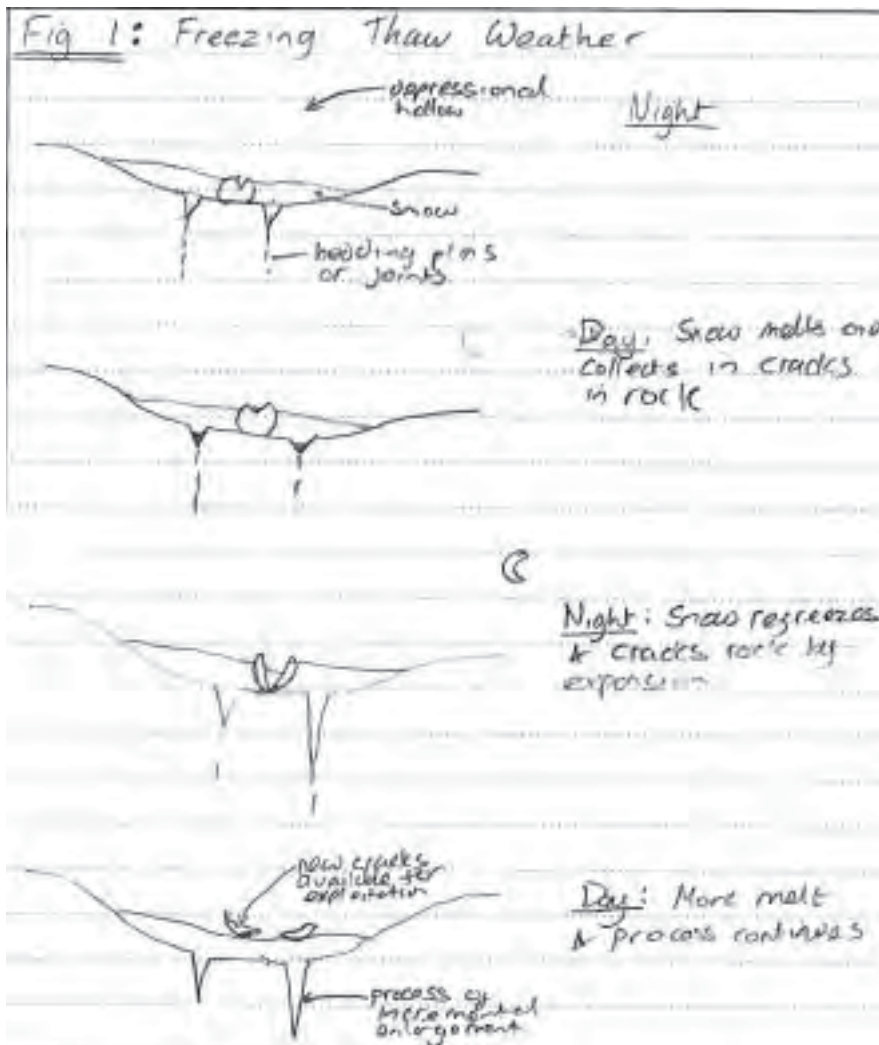 Fig 1: Freezing Thaw Weather
depressional
hollow
Night
snow
bedding plns
or joints
Day: Snow melts and
collects in cracks
in rock
Night: Snow refreezes
& cracks rock by
expansion
new cracks
available for
exploitation
Day: More melt
& process continues
process of
incremental
enlargement